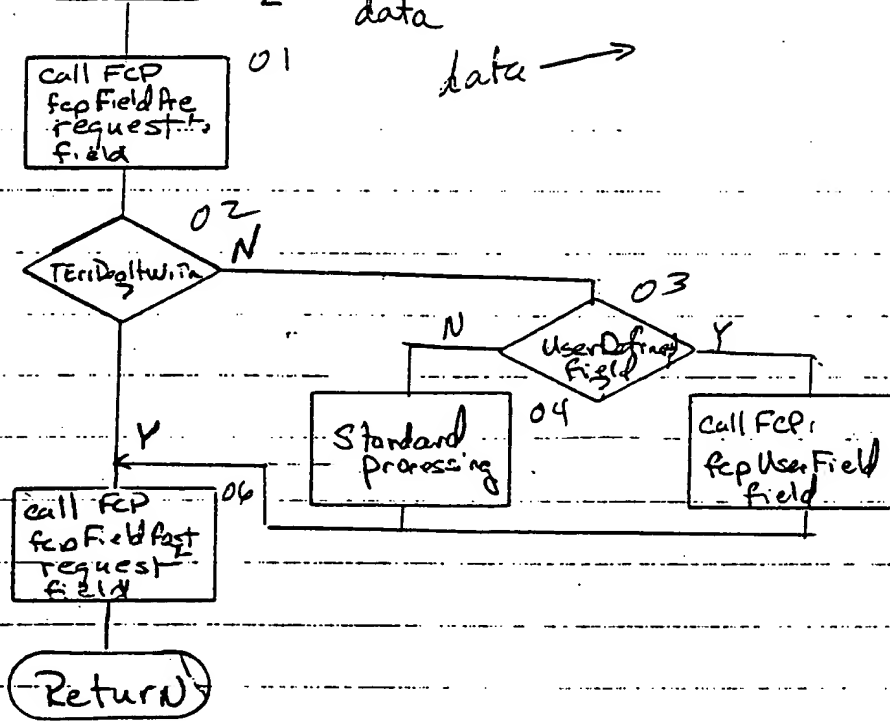 data
data
01
call FCP
fcpFieldPre
request
field
02
N
03
N
UserDefined
field
?
Y
04
Standard
processing
call FCP:
fcpUserField
field
Y
06
call FCP
fcpFieldPost
request
field
Return